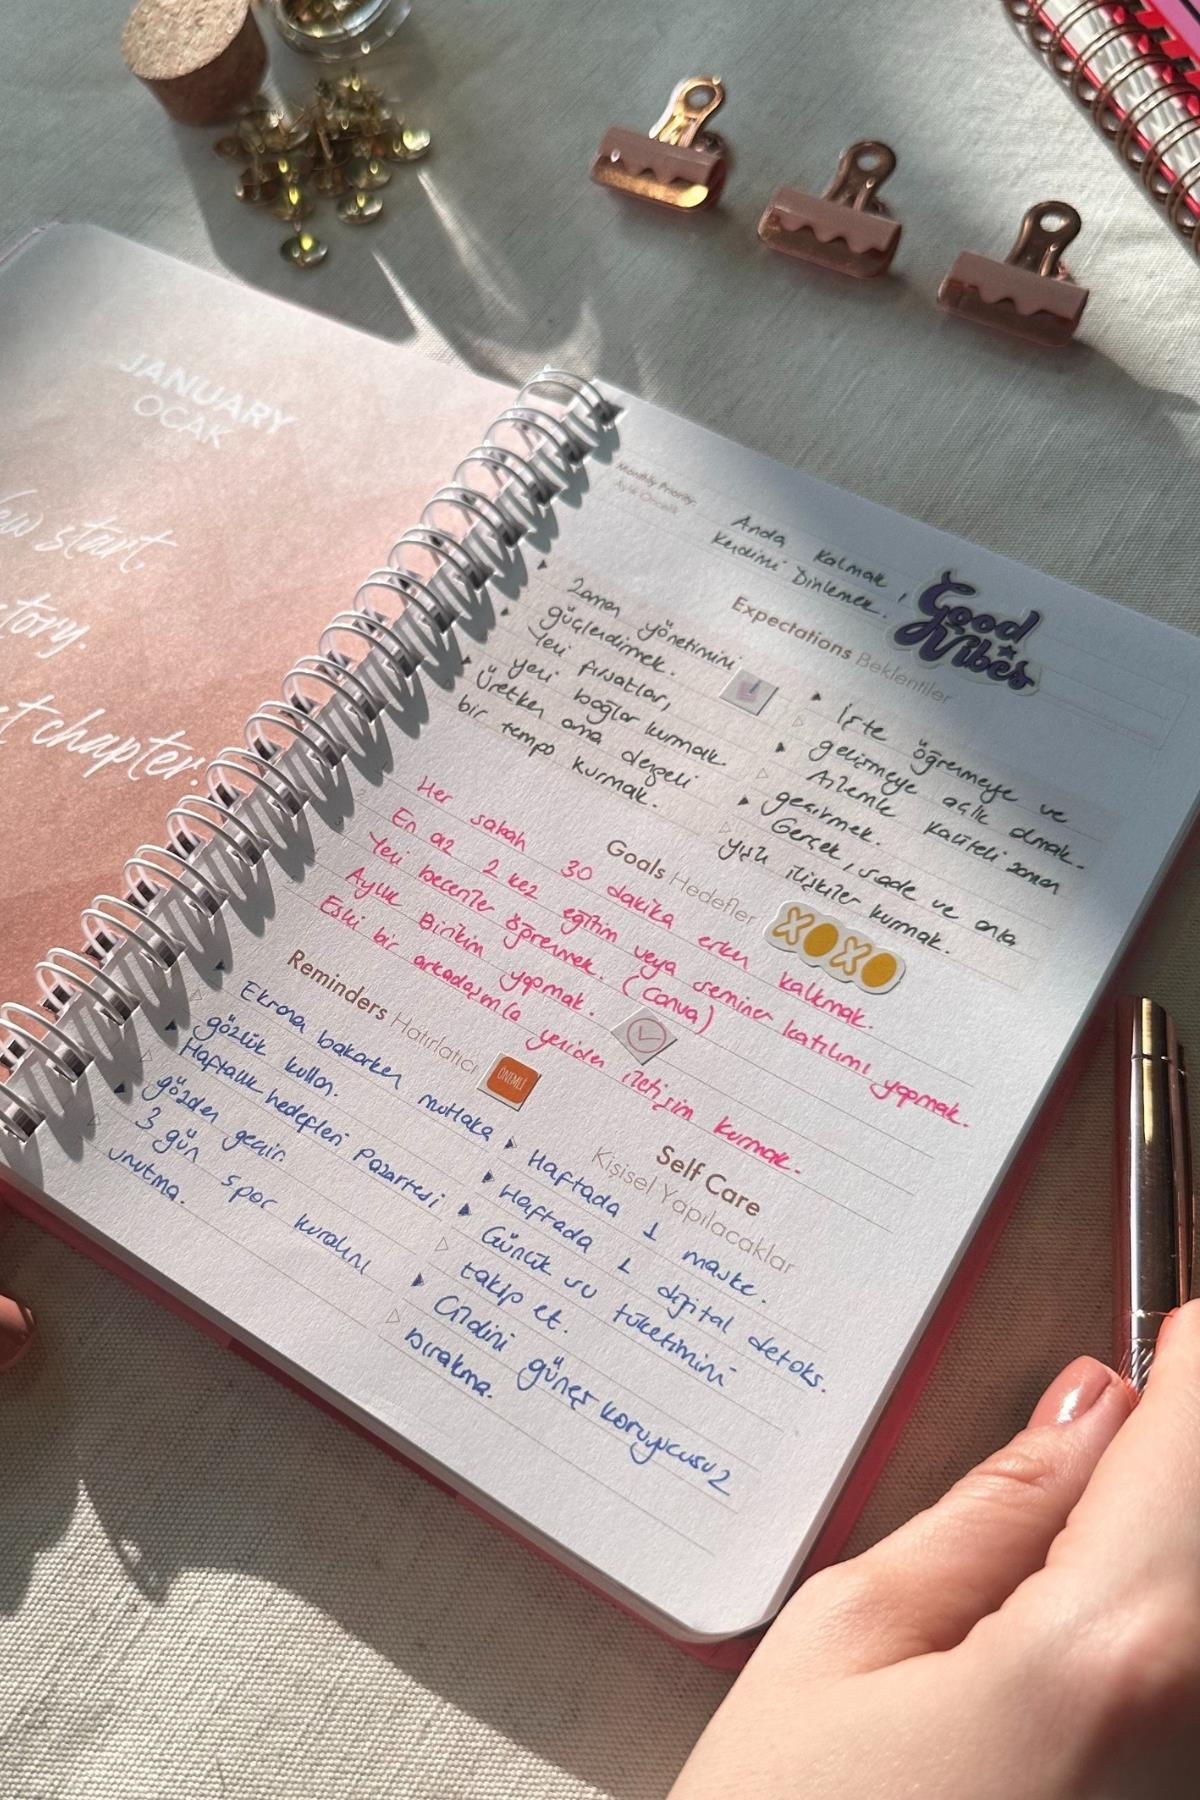 JANUARY
OCAK
ew start,
tory.
t chapter.
Monthly Priority:
Aylık Öncelik
Anda Kalmak,
Kendimi Dinlemek.
Good
Vibes
Expectations Beklentiler
Zaman yönetimini
güçlendirmek.
Yeni fırsatlar,
yeni bağlar kurmak.
Üretken ama dengeli
bir tempo kurmak.
İşte öğrenmeye ve
gelişmeye açık olmak.
Ailemle kaliteli zaman
geçirmek.
Gerçek, sade ve anla
yışlı ilişkiler kurmak.
Goals Hedefler
XOXO
Her sabah 30 dakika erken kalkmak.
En az 2 kez eğitim veya seminer katılımı yapmak.
Yeni beceriler öğrenmek. (Canva)
Aylık Birikim yapmak.
Eski bir arkadaşımla yeniden iletişim kurmak.
Reminders Hatırlatıcı
ÖNEMLİ
Ekrana bakarken mutlaka
gözlük kullan.
Haftalık hedefleri Pazartesi
gözden geçir.
3 gün spor kuralını
unutma.
Self Care
Kişisel Yapılacaklar
Haftada 1 maske.
Haftada 1 dijital detoks.
Günlük su tüketimini
takip et.
Cildini güneş koruyucusuz
bırakma.